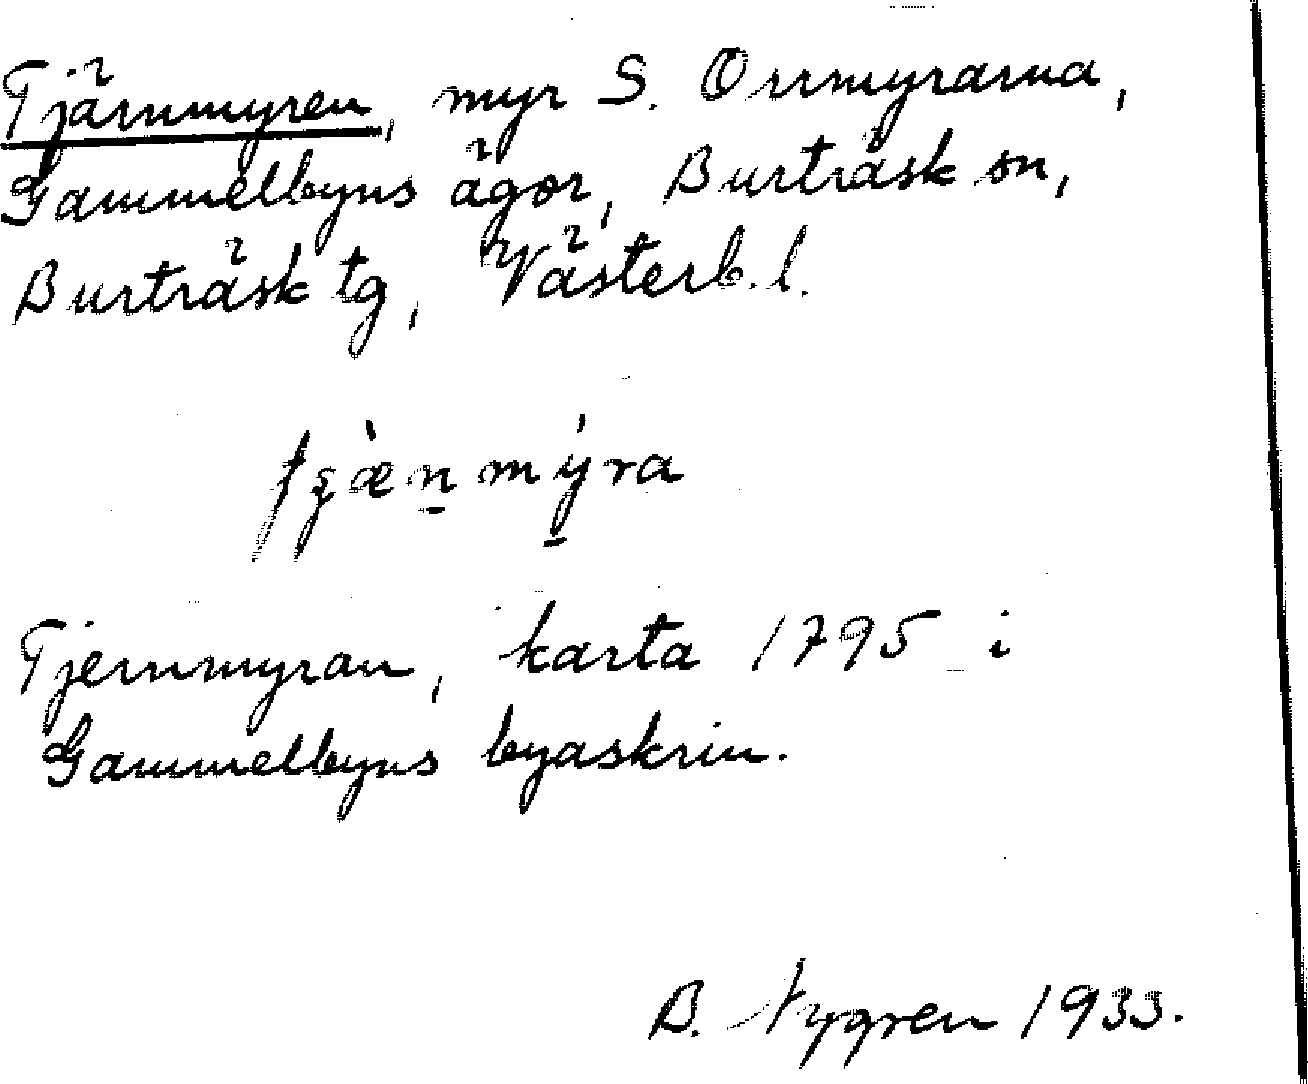 Tjärnmyren, myr S. Orrmyrarna,
Gammelbyns ägor, Burträsk sn,
Burträsk tg, Västerb. l.
Tjernmyran, karta 1795 i
Gammelbyns byaskrin.
B. Nygren 1933.